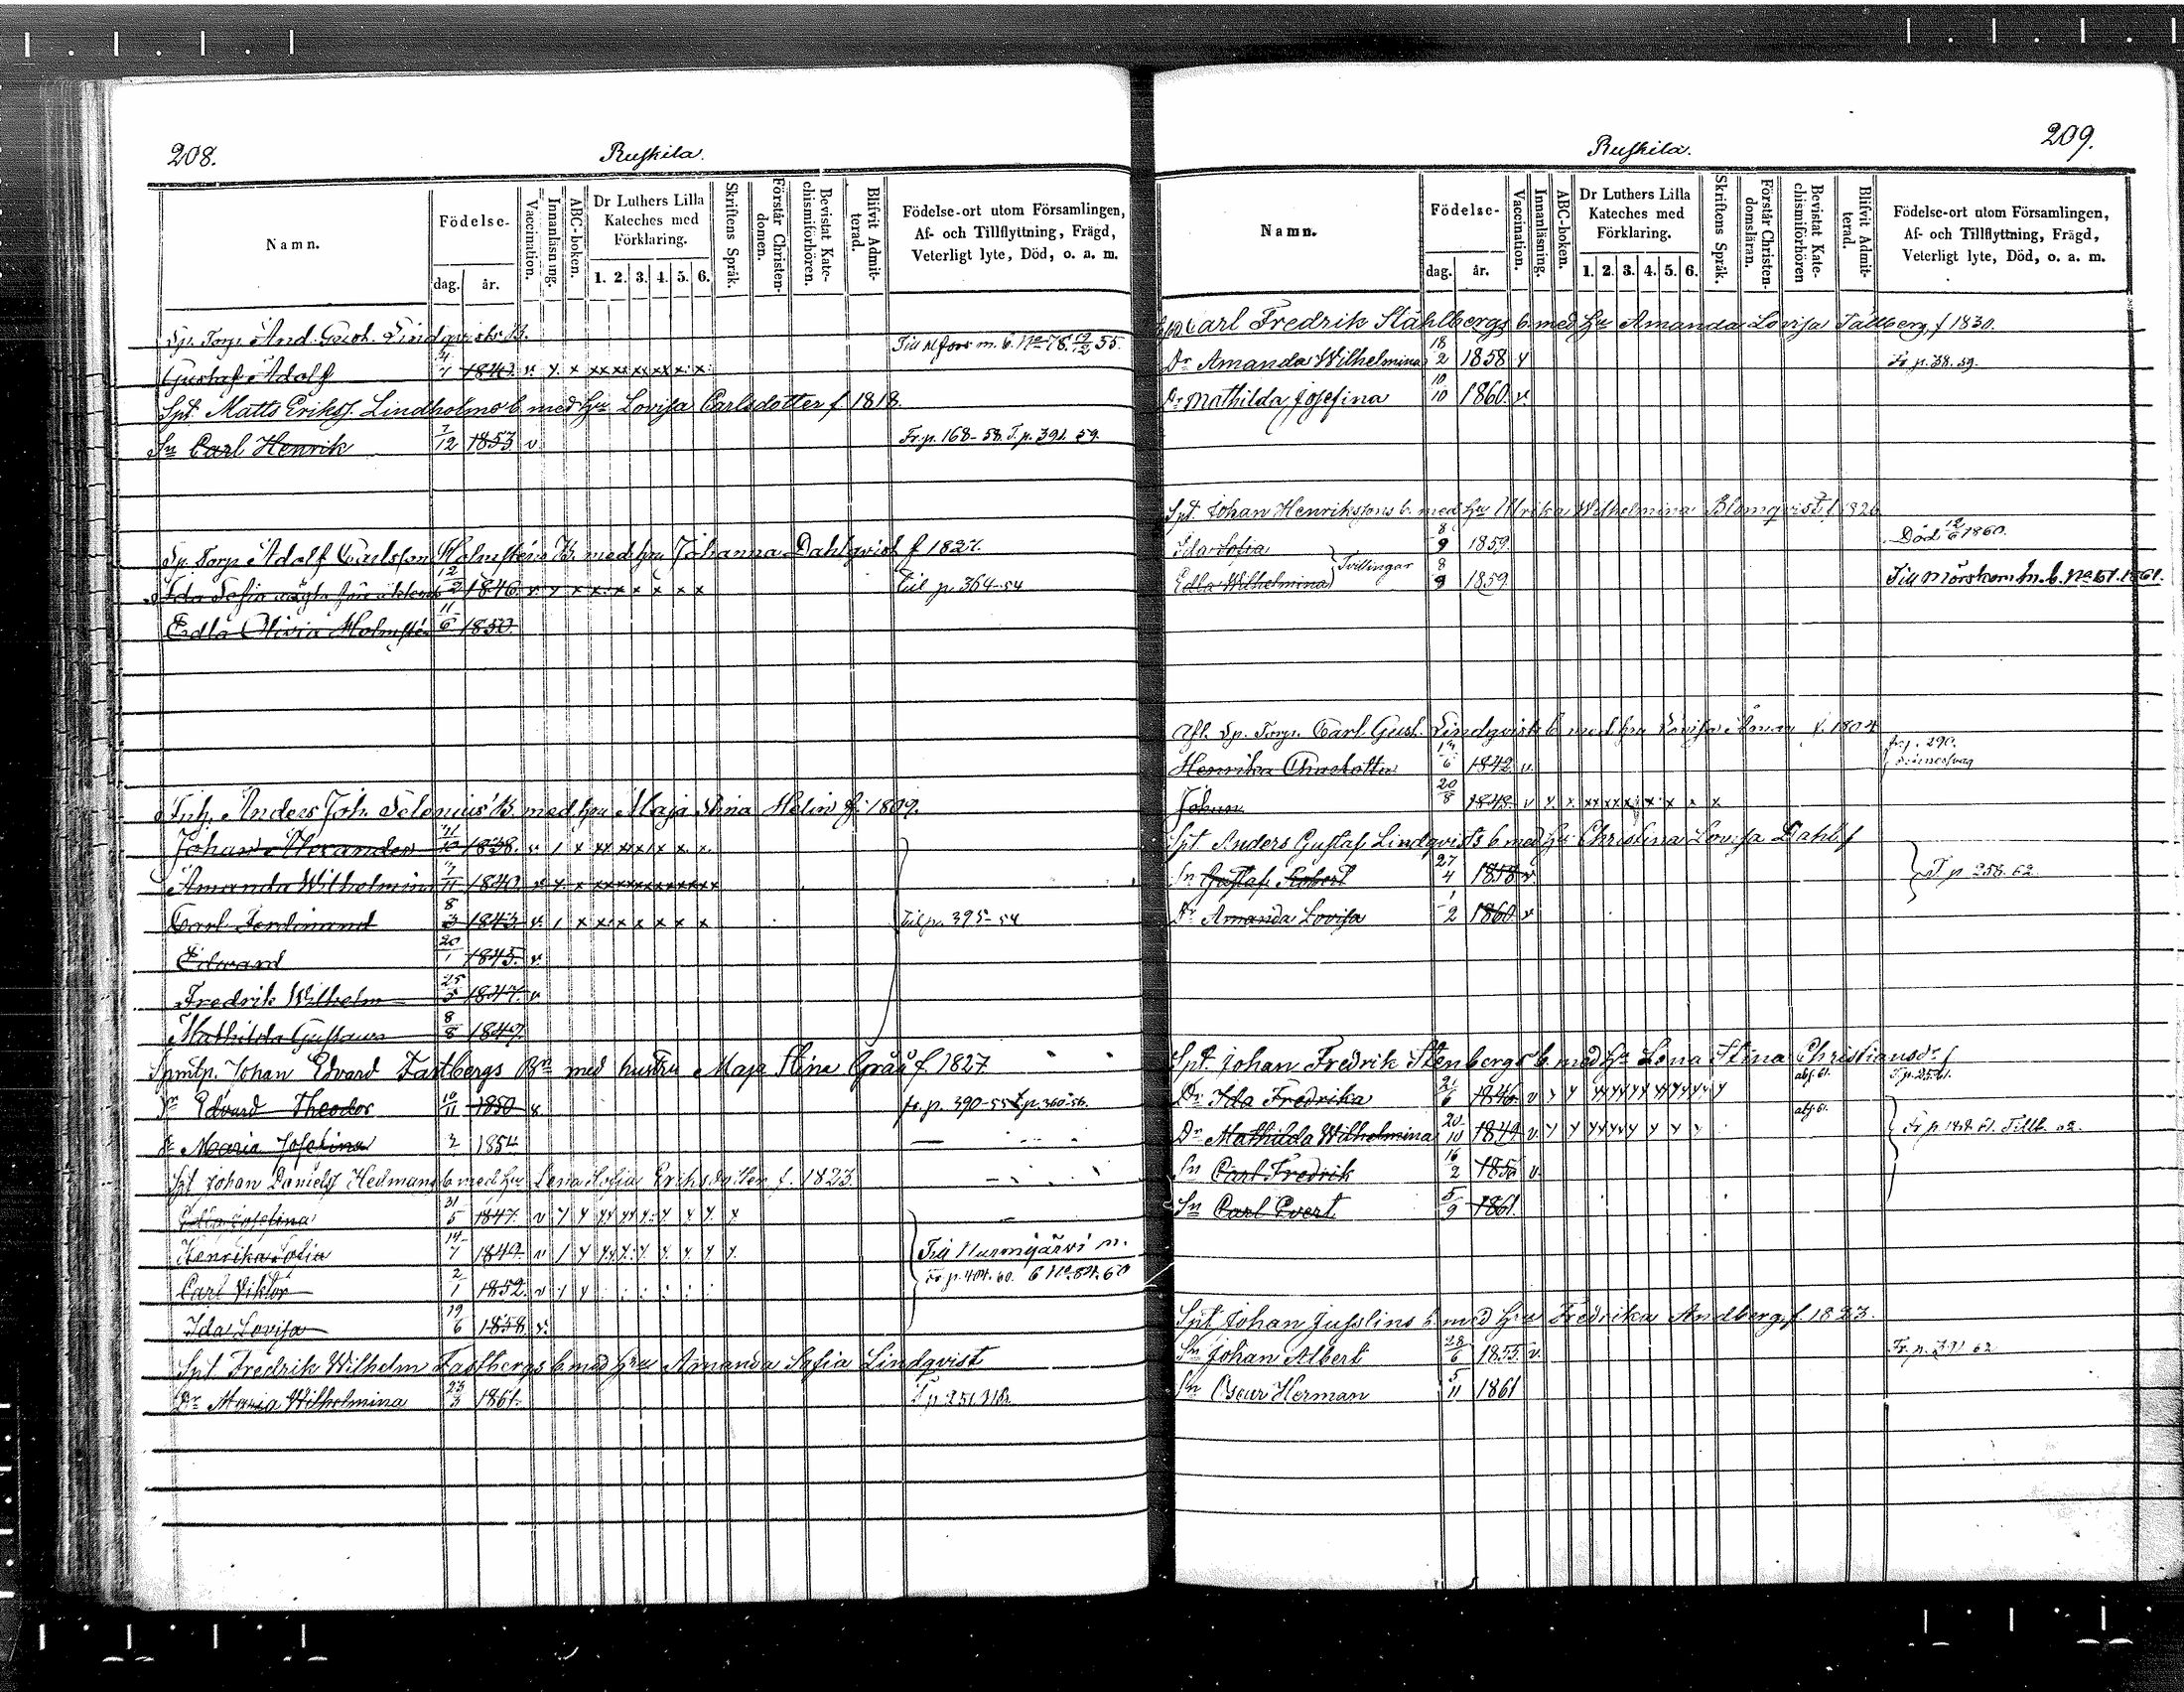 208.
Ruskila.
Namn.
Födelse-
dag. år.
Vaccination.
Innanläsning.
ABC-boken.
Dr Luthers Lilla
Kateches med
Förklaring.
1. 2. 3. 4. 5. 6.
Skriftens Språk.
Förstår Christen-
domen.
Bevistat Kate-
chismiförhören
Blifvit Admit-
terad.
Födelse-ort utom Församlingen,
Af- och Tillflyttning, Frägd,
Veterligt lyte, Död, o. a. m.
Sp. Torp. And. Gust. Lindqvists B.
Gustaf Adolf 1842 v x x xx xx xx xx x x
Spt. Matts Erikss. Lindholms b. med Hu Lovisa Carlsdotter f. 1818.
Sn Carl Henrik 7/12 1853. v Fr. p. 168-58. T. p. 391. 59.
Sp. Torp. Adolf Carlsson Holmsténs B. med hu Johanna Dahlqvist f 1827.
Ida Sofia 12/2 1846. v x x x x x x x x x Till p. 364-54
Edla Olivia Holmstén 11/6 1850.
Inh. Anders Joh. Selenius' B. med hu Maja Stina Helin f. 1809.
Johan Alexander 11/10 1838.
Amanda Wilhelmina 7/11 1840.
Carl Ferdinand 8/3 1843. Till p. 395-54
Edward 20/1 1845. v.
Fredrik Wilhelm 25/5 1847. v
Mathilda Gustava 8/8 1849.
Johan Edvard Fastbergs Bn med hustru Maja Stina Grää f. 1827
Sn Edvard Theodor 10/11 1850 v fr. p. 390-55 T. p. 360-56.
Dr Maria Josefina 2 1854
Spt Johan Daniels. Hedmans b. med Hu Lena Sofia Eriksdotter f. 1823.
Edla Josefina 31/5 1847. v
Henrika Sofia 14/7 1849. v Till Nurmijärvi m.
Carl Viktor 2/1 1852. v Fr. p. 404. 60. b No 84. 60
Ida Lovisa 19/6 1858 v.
Spt Fredrik Wilhelm Fastbergs b. med Hru Amanda Sofia Lindqvist
Dr Maria Wilhelmina 23/3 1861.
209.
Ruskila.
Namn.
Födelse-
dag. år.
Vaccination.
Innanläsning.
ABC-boken.
Dr Luthers Lilla
Kateches med
Förklaring.
1. 2. 3. 4. 5. 6.
Skriftens Språk.
Förstår Christen-
domsläran.
Bevistat Kate-
chismiförhören
Blifvit Admit-
terad.
Födelse-ort utom Församlingen,
Af- och Tillflyttning, Frägd,
Veterligt lyte, Död, o. a. m.
Carl Fredrik Ståhlbergs b. med Hu Amanda Lovisa Tallberg, f 1830.
Dr Amanda Wilhelmina 18/2 1858 v Fr. p. 38. 59.
Dr Mathilda Josefina 10/10 1860. v.
Spt. Johan Henrikssons b. med Hu Ulrika Wilhelmina Blomqvist f 1826
Ida Sofia 8/9 1859. Död 12/6 1860.
Tvillingar
Edla Wilhelmina 8/9 1859 Till Mörskom m. b. No 61. 1861.
Afl. Sp. Torp. Carl Gust. Lindqvists b. med hu Lovisa Åman f. 1804
Henrika Charlotta 6 1842 v. fr p. 290.
Johan 20/8 1848. v x x xx xx x x x x x
Spt Anders Gustaf Lindqvists b. med Hu Christina Lovisa Dahl f
Sn Gustaf Robert 27/4 1858 v. T. p 258. 62.
Dr Amanda Lovisa 1/2 1860 v
Spt. Johan Fredrik Stenbergs b. med Hu Lena Stina Christiansdr f
Dr Ida Fredrika 21/6 1846. v abs. 61. T. p. 25. 61.
Dr Mathilda Wilhelmina 20/10 1849 v. abs. 61.
Sn Carl Fredrik 16/2 1856 v.
Sn Carl Evert 5/9 1861.
Spt Johan Jusslins b. med Hru Fredrika Andberg, f. 1823.
Sn Johan Albert 28/6 1855. v. Fr. p. 391 62
Sn Oscar Herman 5/11 1861